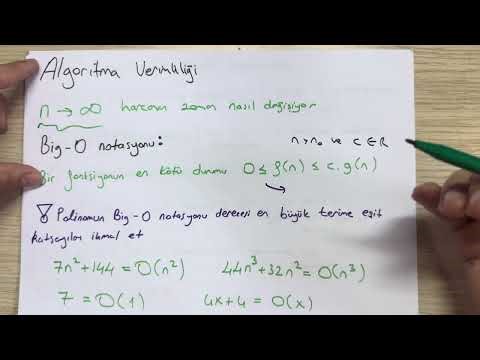 Algoritma Verimliliği
n → ∞ harcanan zaman nasıl değişiyor
Big-O notasyonu: n>n₀ ve c∈R
Bir fonksiyonun en kötü durumu 0 ≤ f(n) ≤ c.g(n)
Polinomun Big-O notasyonu derecesi en büyük terime eşit
katsayıları ihmal et
7n²+144 = O(n²) 44n³+32n² = O(n³)
7 = O(1) 4x+4 = O(x)